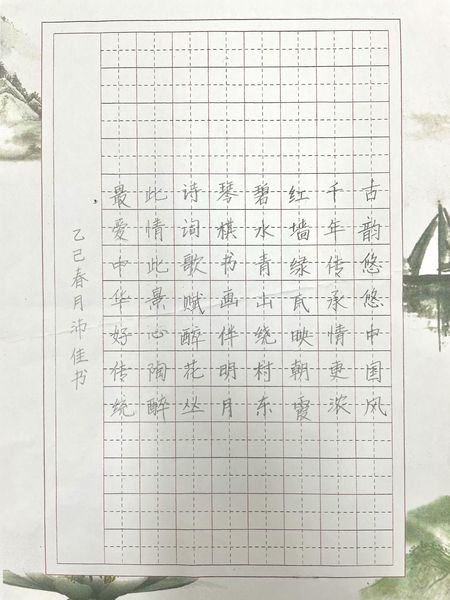 古韵悠悠中国风
千年传承情更浓
红墙绿瓦映朝霞
碧水青山绕村东
琴棋书画伴明月
诗词歌赋醉花丛
此情此景心陶醉
最爱中华好传统
乙巳春月沛佳书